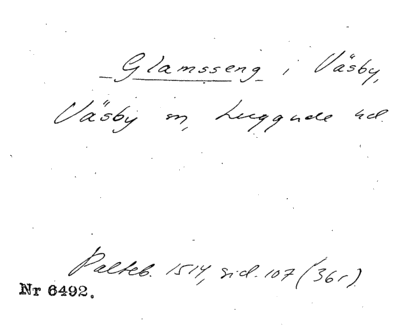 Glamsseng i Väsby,
Väsby sn, Luggude hd.
Palteb. 1514, sid. 107 (36r)
Nr 6492.